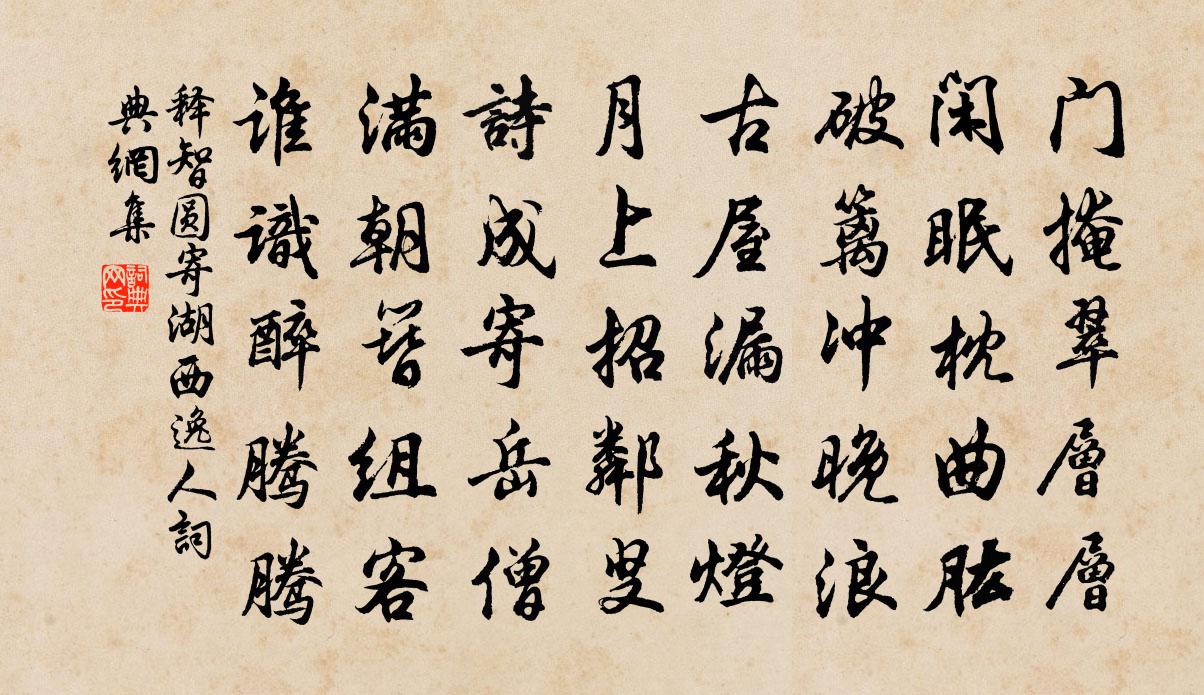 门掩翠層層
閑眠枕曲肱
破篱冲晚浪
古屋漏秋燈
月上招鄰叟
詩成寄岳僧
满朝簪组客
誰識醉腾腾
释智圆寄湖西逸人詞
典網集
詞典
网印